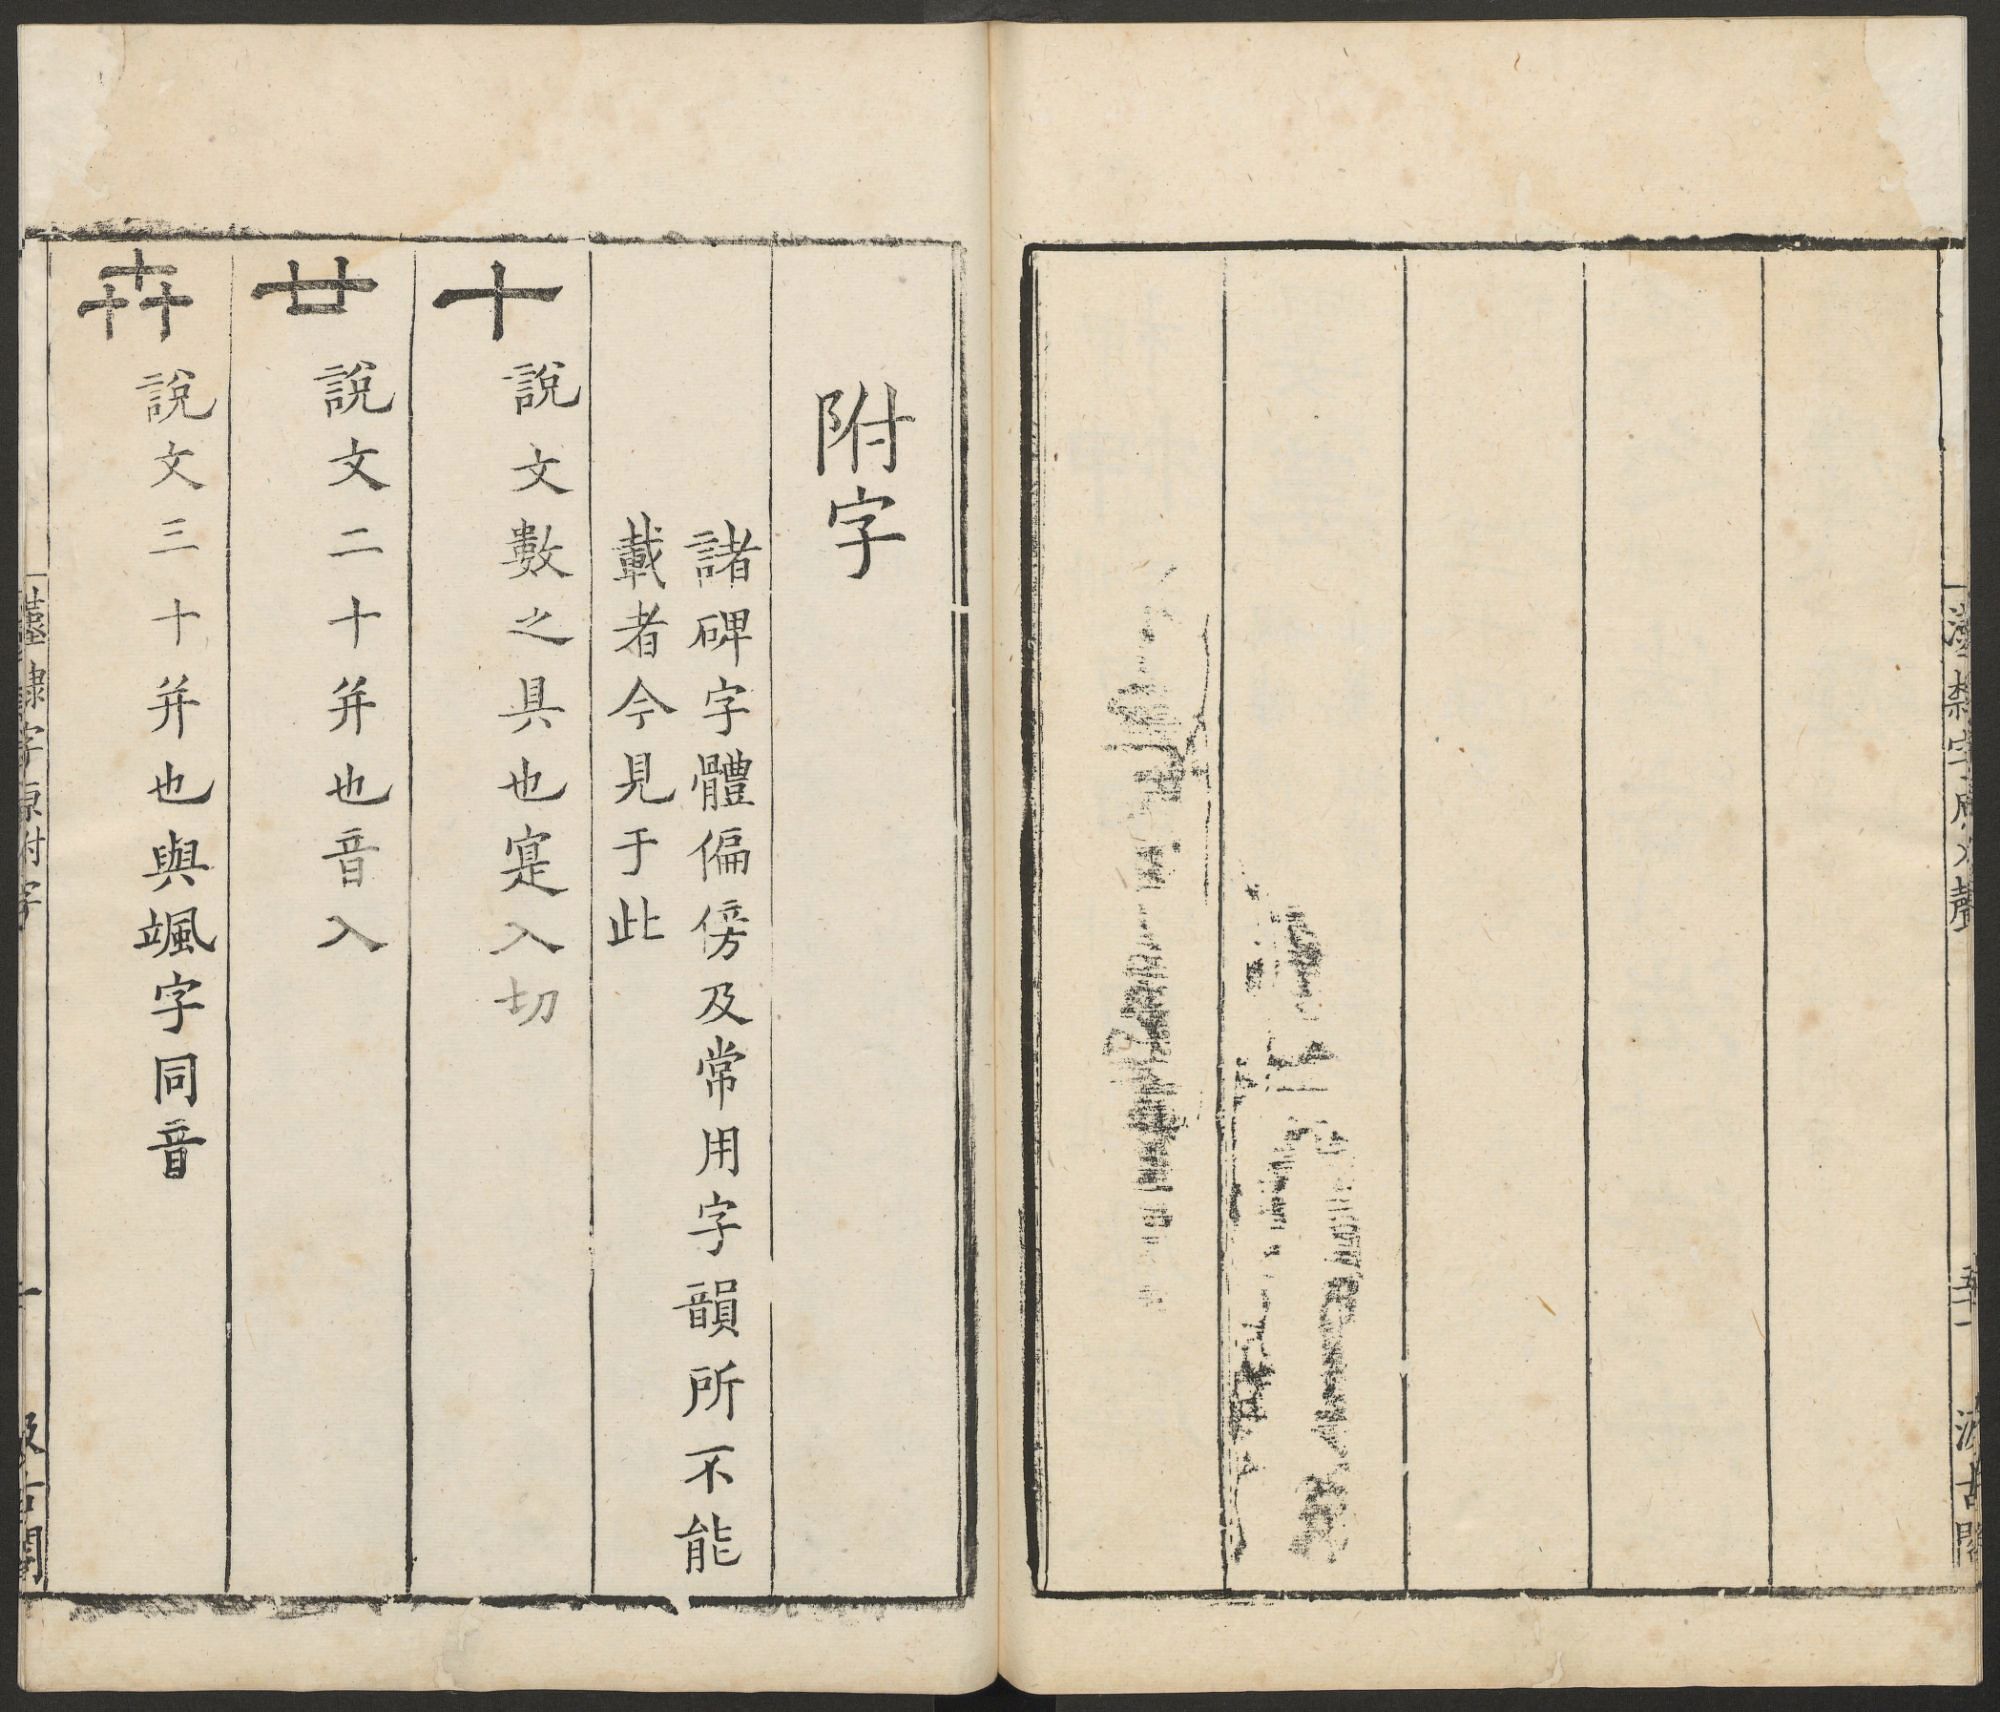 漢隸字原入聲
五十一
汲古閣
附字
諸碑字體偏傍及常用字韻所不能
載者今見于此
十 說文數之具也寔入切
廿 說文二十并也音入
卉 說文三十并也與颯字同音
漢隸字原附字
一
汲古閣